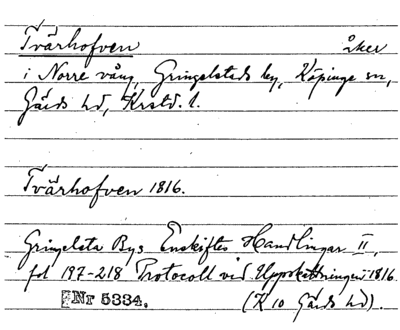 Tvärhofven åker
i Norre vång, Gringelstads by, Köpinge sn,
Gärds hd, Krstd. l.
Tvärhofven 1816.
Gringelsta Bys Enskiftes Handlingar II,
fol 197-218 Protocoll vid Uppskattningen 1816
Nr 5334. (K 10 Gärds hd).